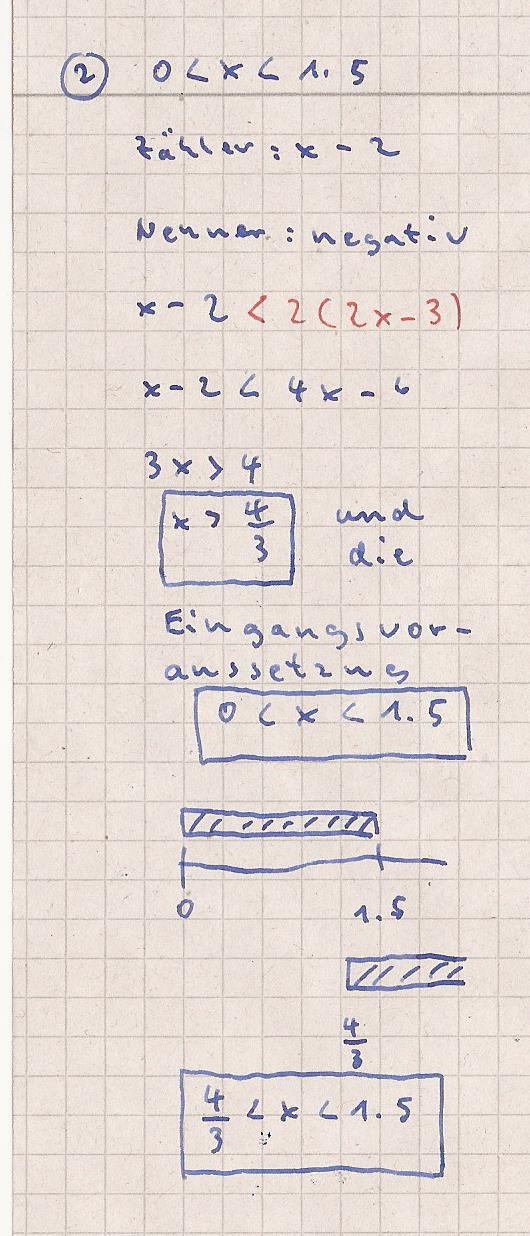 ② 0 < x < 1.5
Zähler: x - 2
Nenner: negativ
x - 2 < 2(2x - 3)
x - 2 < 4x - 6
3x > 4
x > 4/3 und
die
Eingangsvor-
aussetzung
0 < x < 1.5
0 1.5
4/3
4/3 < x < 1.5